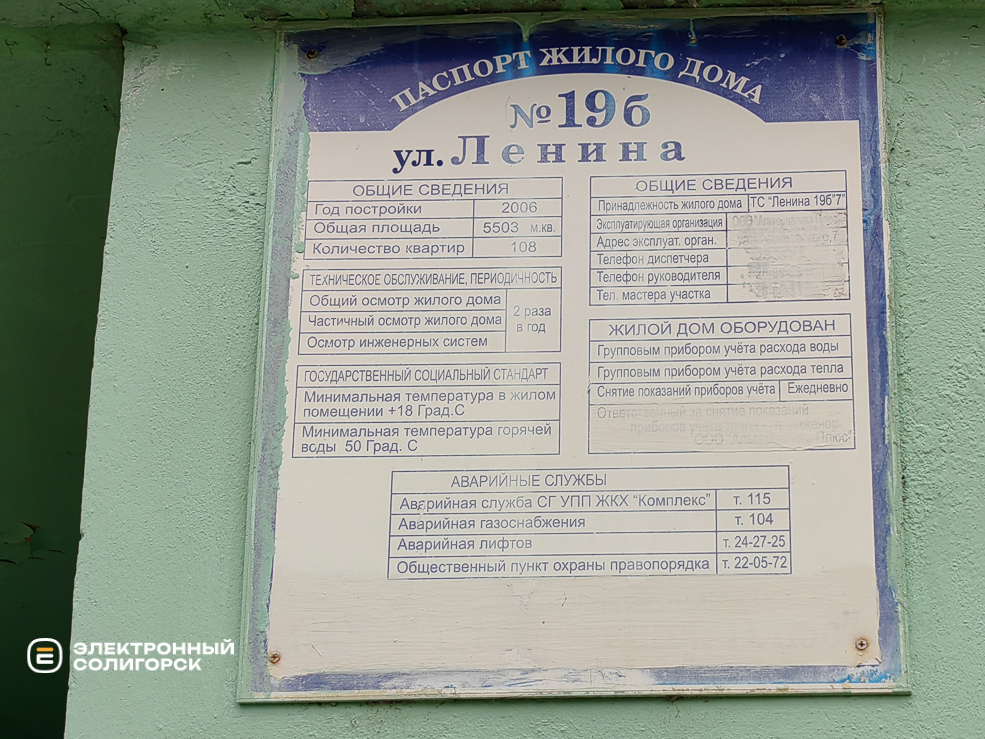 ПАСПОРТ ЖИЛОГО ДОМА
№19б
ул. Ленина
ОБЩИЕ СВЕДЕНИЯ
Год постройки 2006
Общая площадь 5503 м.кв.
Количество квартир 108
ТЕХНИЧЕСКОЕ ОБСЛУЖИВАНИЕ, ПЕРИОДИЧНОСТЬ
Общий осмотр жилого дома
Частичный осмотр жилого дома
Осмотр инженерных систем
2 раза
в год
ГОСУДАРСТВЕННЫЙ СОЦИАЛЬНЫЙ СТАНДАРТ
Минимальная температура в жилом
помещении +18 Град.С
Минимальная температура горячей
воды 50 Град. С
ОБЩИЕ СВЕДЕНИЯ
Принадлежность жилого дома ТС "Ленина 19б"7"
Эксплуатирующая организация
Адрес эксплуат. орган.
Телефон диспетчера
Телефон руководителя
Тел. мастера участка
ЖИЛОЙ ДОМ ОБОРУДОВАН
Групповым прибором учёта расхода воды
Групповым прибором учёта расхода тепла
Снятие показаний приборов учёта Ежедневно
Ответственный за снятие показаний
приборов учёта тепла инженер
ООО Плюс"
АВАРИЙНЫЕ СЛУЖБЫ
Аварийная служба СГ УПП ЖКХ "Комплекс" т. 115
Аварийная газоснабжения т. 104
Аварийная лифтов т. 24-27-25
Общественный пункт охраны правопорядка т. 22-05-72
ЭЛЕКТРОННЫЙ
СОЛИГОРСК